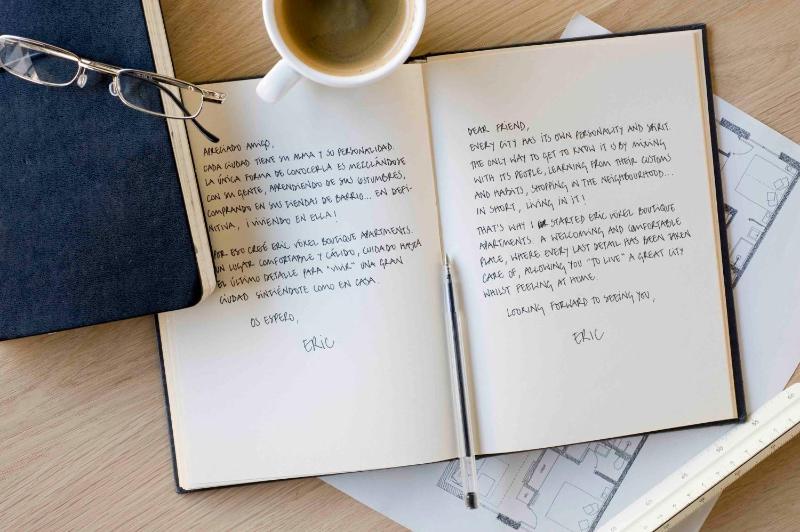 APRECIADO AMIGO,
CADA CIUDAD TIENE SU ALMA Y SU PERSONALIDAD.
LA ÚNICA FORMA DE CONOCERLA ES MEZCLÁNDOSE
CON SU GENTE, APRENDIENDO DE SUS COSTUMBRES,
COMPRANDO EN SUS TIENDAS DE BARRIO... EN DEFI-
NITIVA, ¡VIVIENDO EN ELLA!
POR ESO CREÉ ERIC VÖKEL BOUTIQUE APARTMENTS.
UN LUGAR CONFORTABLE Y CÁLIDO, CUIDADO HASTA
EL ÚLTIMO DETALLE PARA "VIVIR" UNA GRAN
CIUDAD SINTIÉNDOTE COMO EN CASA.
OS ESPERO,
ERIC
DEAR FRIEND,
EVERY CITY HAS ITS OWN PERSONALITY AND SPIRIT.
THE ONLY WAY TO GET TO KNOW IT IS BY MIXING
WITH ITS PEOPLE, LEARNING FROM THEIR CUSTOMS
AND HABITS, SHOPPING IN THE NEIGHBOURHOOD...
IN SHORT, LIVING IN IT!
THAT'S WAY I STARTED ERIC VÖKEL BOUTIQUE
APARTMENTS. A WELCOMING AND COMFORTABLE
PLACE, WHERE EVERY LAST DETAIL HAS BEEN TAKEN
CARE OF, ALLOWING YOU "TO LIVE" A GREAT CITY
WHILST FEELING AT HOME.
LOOKING FORWARD TO SEEING YOU,
ERIC